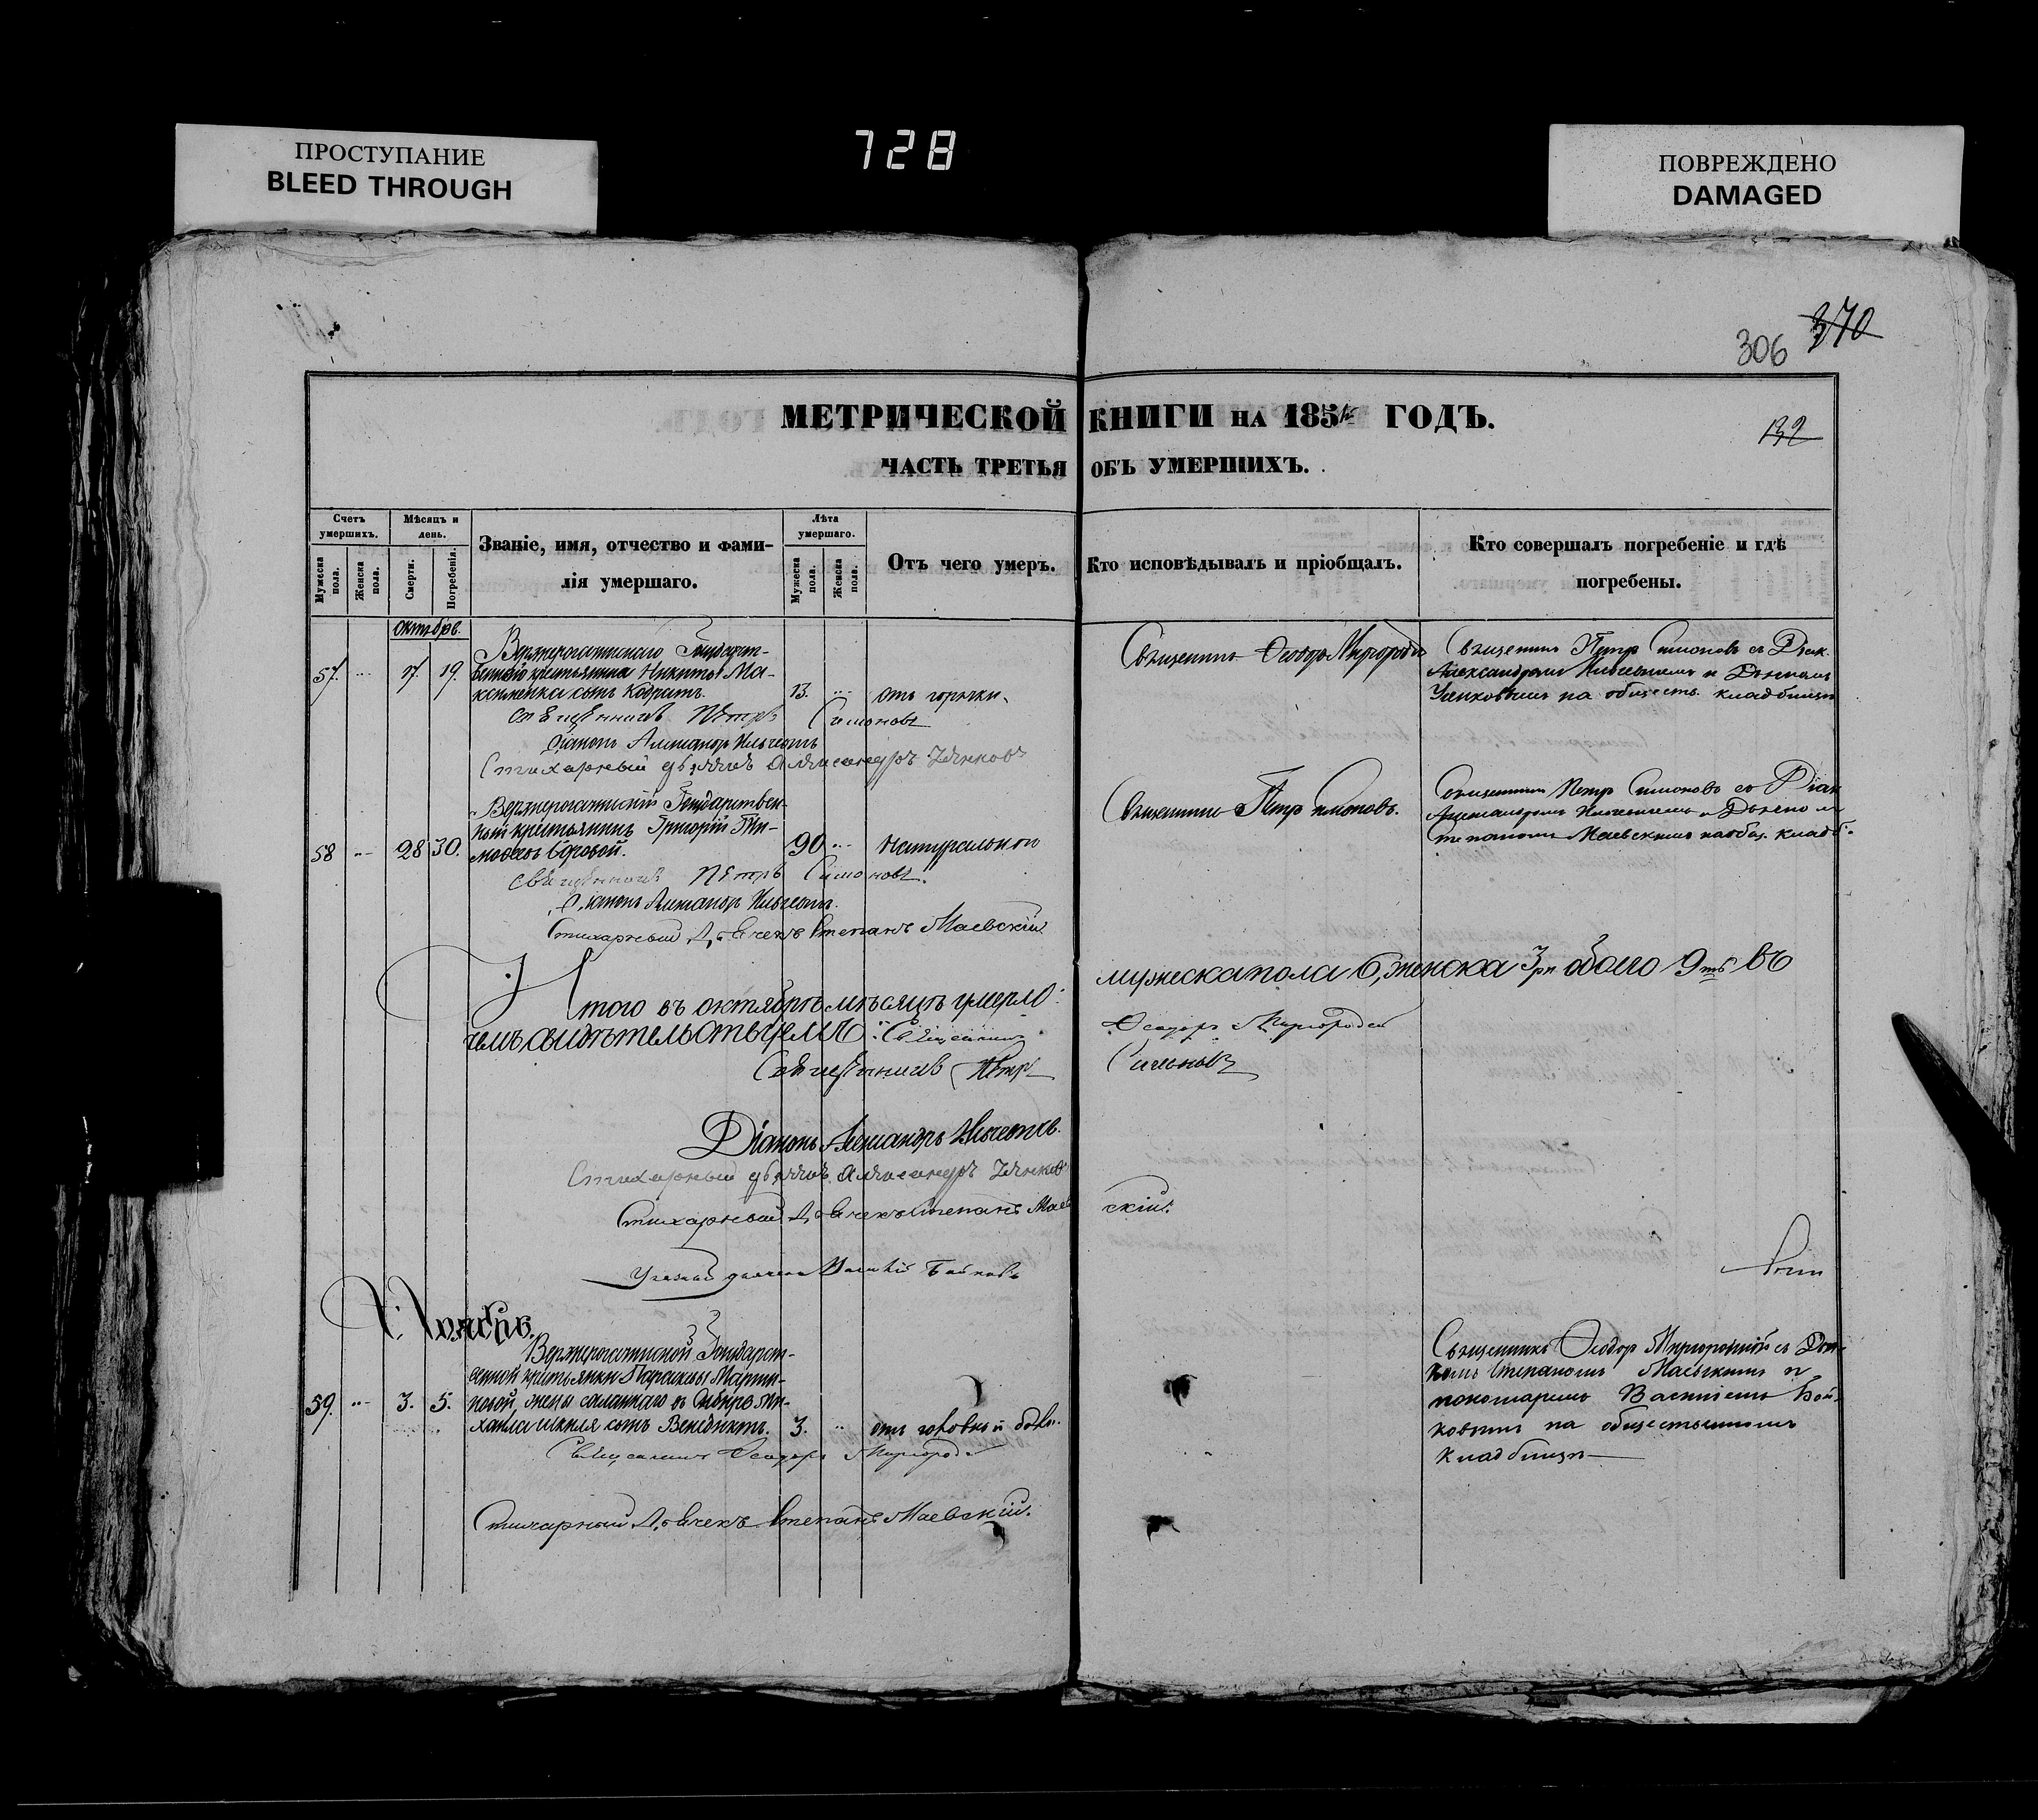 ПРОСТУПАНИЕ
BLEED THROUGH
728
ПОВРЕЖДЕНО
DAMAGED
306 370
МЕТРИЧЕСКОЙ КНИГИ НА 185 ГОДЪ.
132
ЧАСТЬ ТРЕТЬЯ ОБЪ УМЕРШИХЪ.
Счетъ умершихъ.
Мужеска пола.
Женска пола.
Мѣсяцъ и день.
Смерти.
Погребенія.
Званіе, имя, отчество и фами-
лія умершаго.
Лѣта умершаго.
Мужеска пола.
Женска пола.
Отъ чего умеръ.
Кто исповѣдывалъ и пріобщалъ.
Кто совершалъ погребеніе и гдѣ
погребены.
Октябрь.
Верхнерогачикскаго Государст-
веннаго крестьянина Никиты Ма-
57. 17. 19. ксименка сынъ Кодратъ. 13. отъ горячки.
Священникъ Феодоръ Миргородскій
Священникъ Петръ Симоновъ съ Діак.
Александромъ и Дьячкомъ
на обществ. кладбищѣ
Священникъ Петръ Симоновъ
Діаконъ Александръ
Стихарный дьячекъ Александръ
Верхнерогачикскій Государствен-
ный крестьянинъ Григорій Ти-
58 28 30. мофеевъ 90 Натурально
Священникъ Петръ Симоновъ.
Священникъ Петръ Симоновъ со Діак
Александромъ и Дьячкомъ
Степаномъ Маевскимъ на общ. кладб.
Священникъ Петръ Симоновъ.
Діаконъ Александръ
Стихарный Дьячекъ Степанъ Маевскій
Итого въ октябрѣ мѣсяцѣ умерло: мужеска пола 6, женска 3, обоего 9 въ
чемъ свидѣтельствуемъ: Священникъ Феодоръ Миргородскій
Священникъ Петръ Симоновъ
Діаконъ Александръ
Стихарный дьячекъ Александръ
Стихарный Дьячекъ Степанъ Маевскій.
Василій Бойковъ
Ноябрь.
Верхнерогачикской Государст-
венной крестьянки Параскевы Мартин-
59. 3. 5. новой, жены сосланнаго въ Сибирь Ми-
хаила сынъ Венедиктъ. 3. отъ головной боли.
Священникъ Феодоръ Миргородскій съ Дья-
комъ Степаномъ Маевскимъ и
пономаремъ Василіемъ Бой-
ковымъ на общественномъ
кладбищѣ
Священникъ Феодоръ Миргородскій
Стихарный Дьячекъ Степанъ Маевскій.